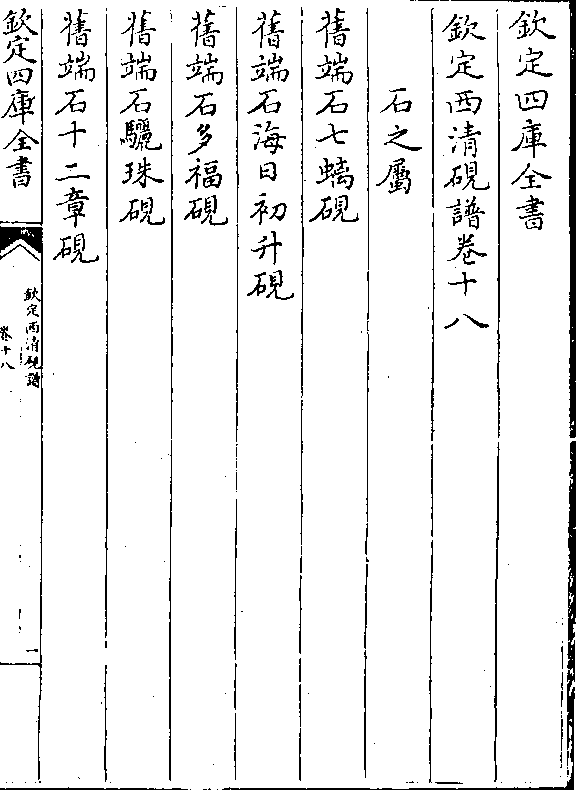 欽定四庫全書
欽定西清硯譜卷十八
石之屬
舊端石七螭硯
舊端石海日初升硯
舊端石多福硯
舊端石驪珠硯
舊端石十二章硯
欽定四庫全書
欽定西清硯譜
卷十八
一